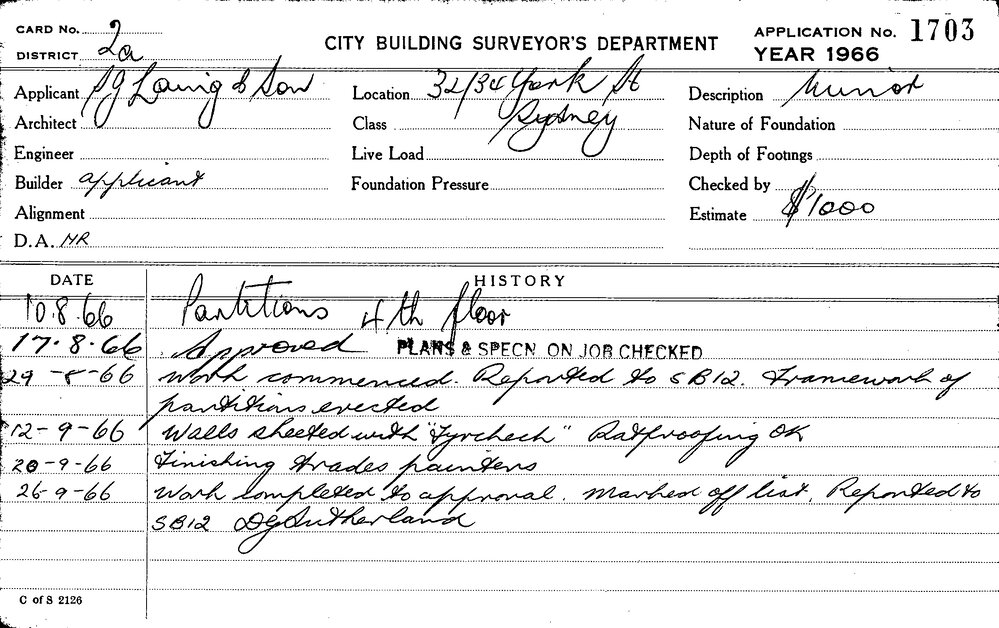 CARD No. 2
DISTRICT 2a
CITY BUILDING SURVEYOR'S DEPARTMENT
APPLICATION No. 1703
YEAR 1966
Applicant Laing & Son
Location 32/34 York St
Sydney
Description Minor
Architect
Class
Nature of Foundation
Engineer
Live Load
Depth of Footings
Builder applicant
Foundation Pressure
Checked by
Alignment
Estimate $1000
D.A. NR
DATE HISTORY
10.8.66 Partitions 4th floor
17.8.66 Approved PLANS & SPECN ON JOB CHECKED
29-8-66 Work commenced. Reported to SB12. Framework of
partitions erected
12-9-66 Walls sheeted with "Fyrchech" Ratproofing OK
20-9-66 Finishing trades painters
26-9-66 Work completed to approval. Marked off list. Reported to
SB12 DG Sutherland
C of S 2126